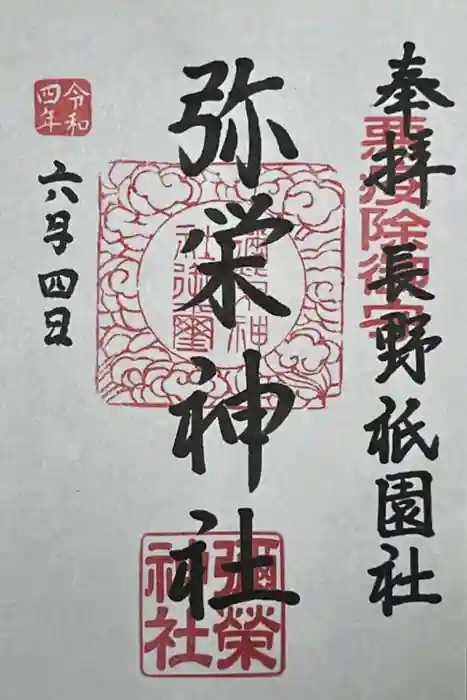 奉拝 長野祇園社
悪疫除御守
弥栄神社
彌榮神社
令和四年
六月四日